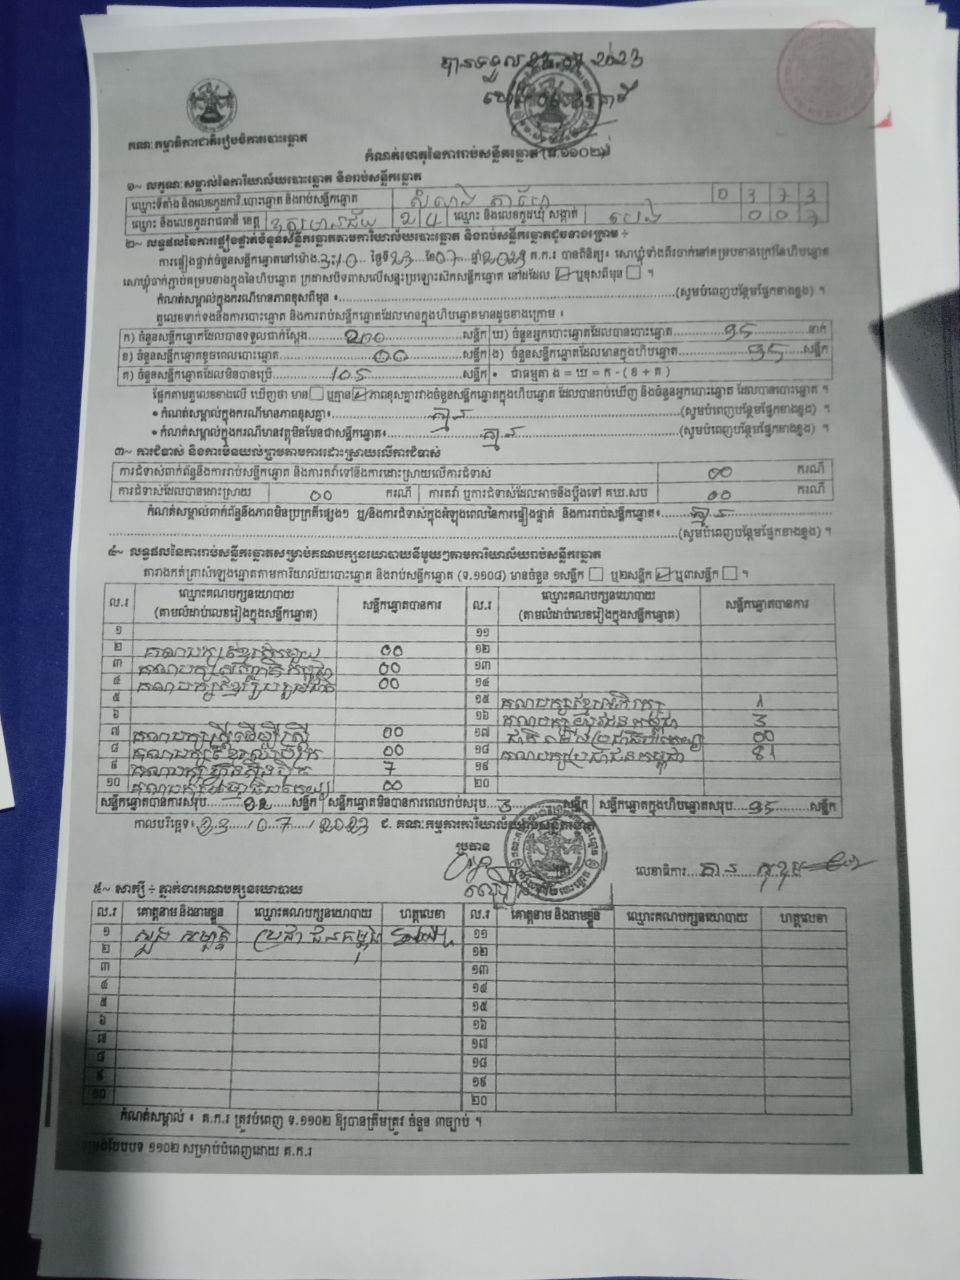 បានទទួល
គណៈកម្មាធិការជាតិរៀបចំការបោះឆ្នោត
កំណត់ហេតុនៃការរាប់សន្លឹកឆ្នោត (ទ.១១០២)
១~ លក្ខណៈសម្គាល់នៃការិយាល័យបោះឆ្នោត និងរាប់សន្លឹកឆ្នោត
ឈ្មោះទីតាំង និងលេខកូដការិ.បោះឆ្នោត និងរាប់សន្លឹកឆ្នោត 0 3 7 3
ឈ្មោះ និងលេខកូដរាជធានី ខេត្ត ឈ្មោះ និងលេខកូដឃុំ សង្កាត់
២~ លទ្ធផលនៃការផ្ទៀងផ្ទាត់ចំនួនសន្លឹកឆ្នោតតាមការិយាល័យបោះឆ្នោត និងរាប់សន្លឹកឆ្នោតដូចខាងក្រោម ÷
ការផ្ទៀងផ្ទាត់ចំនួនសន្លឹកឆ្នោតនៅម៉ោង 3:10 ថ្ងៃទី 23 ខែ 07 ឆ្នាំ 2023 គ.ក.រ បានពិនិត្យ៖ សោឃ្មុំទាំងពីរចាក់នៅគម្របខាងក្រៅនៃហិប
កំណត់សម្គាល់ក្នុងករណីមានភាពខុសពីមុន ៖ (សូមបំពេញបន្ថែមផ្នែកខាងខ្នង) ។
តួលេខទាក់ទងនឹងការបោះឆ្នោត និងការរាប់សន្លឹកឆ្នោតដែលមានក្នុងហិបឆ្នោតមានដូចខាងក្រោម ៖
ក) ចំនួនសន្លឹកឆ្នោតដែលបានទទួលជាក់ស្តែង 200 សន្លឹក ឃ) ចំនួនអ្នកបោះឆ្នោតដែលបានបោះឆ្នោត 95 នាក់
ខ) ចំនួនសន្លឹកឆ្នោតខូចពេលបោះឆ្នោត 00 សន្លឹក ង) ចំនួនសន្លឹកឆ្នោតដែលមានក្នុងហិបឆ្នោត 95 សន្លឹក
គ) ចំនួនសន្លឹកឆ្នោតដែលមិនបានប្រើ 105 សន្លឹក • ជាធម្មតា ង = ឃ = ក - (ខ + គ)
ផ្អែកតាមតួលេខខាងលើ ឃើញថា មាន ឬគ្មាន ភាពខុសគ្នារវាងចំនួនសន្លឹកឆ្នោតក្នុងហិបឆ្នោត ដែលបានរាប់ឃើញ និងចំនួនអ្នកបោះឆ្នោត ដែលបានបោះឆ្នោត ។
• កំណត់សម្គាល់ក្នុងករណីមានភាពខុសគ្នា៖ គ្មាន (សូមបំពេញបន្ថែមផ្នែកខាងខ្នង) ។
• កំណត់សម្គាល់ក្នុងករណីមានវត្ថុមិនមែនជាសន្លឹកឆ្នោត៖ គ្មាន (សូមបំពេញបន្ថែមផ្នែកខាងខ្នង) ។
៣~ ការជំទាស់ និងការមិនយល់ព្រមតាមការដោះស្រាយលើការជំទាស់
ការជំទាស់ពាក់ព័ន្ធនឹងការរាប់សន្លឹកឆ្នោត និងការតវ៉ាទៅនឹងការដោះស្រាយលើការជំទាស់ 00 ករណី
ការជំទាស់ដែលបានដោះស្រាយ 00 ករណី ការតវ៉ា ឬការជំទាស់ដែលអាចនឹងប្តឹងទៅ គឃ.សប 00 ករណី
កំណត់សម្គាល់ពាក់ព័ន្ធនឹងភាពមិនប្រក្រតីផ្សេងៗ ឬ/និងការជំទាស់ក្នុងអំឡុងពេលនៃការផ្ទៀងផ្ទាត់ និងការរាប់សន្លឹកឆ្នោត៖ គ្មាន
(សូមបំពេញបន្ថែមផ្នែកខាងខ្នង) ។
៤~ លទ្ធផលនៃការរាប់សន្លឹកឆ្នោតសម្រាប់គណបក្សនយោបាយនីមួយៗតាមការិយាល័យរាប់សន្លឹកឆ្នោត
តារាងកត់ត្រាសំឡេងឆ្នោតតាមការិយាល័យបោះឆ្នោត និងរាប់សន្លឹកឆ្នោត (ទ.១១០៨) មានចំនួន ១សន្លឹក ឬ២សន្លឹក ឬ៣សន្លឹក ។
ល.រ ឈ្មោះគណបក្សនយោបាយ (តាមលំដាប់លេខរៀងក្នុងសន្លឹកឆ្នោត) សន្លឹកឆ្នោតបានការ ល.រ ឈ្មោះគណបក្សនយោបាយ (តាមលំដាប់លេខរៀងក្នុងសន្លឹកឆ្នោត) សន្លឹកឆ្នោតបានការ
១ ១១
២ គណបក្សខ្មែរតែមួយ 00 ១២
៣ 00 ១៣
៤ គណបក្សខ្មែររួបរួមជាតិ 00 ១៤
៥ ១៥
៦ ១៦ 3
៧ គណបក្សស្ត្រីដើម្បីស្ត្រី 00 ១៧ 00
៨ 00 ១៨ គណបក្សប្រជាជនកម្ពុជា 81
៩ គណបក្សហ៊្វុនស៊ិនប៉ិច 7 ១៩
១០ 00 ២០
សន្លឹកឆ្នោតបានការសរុប 92 សន្លឹក សន្លឹកឆ្នោតមិនបានការពេលរាប់សរុប 3 សន្លឹក សន្លឹកឆ្នោតក្នុងហិបឆ្នោតសរុប 95 សន្លឹក
កាលបរិច្ឆេទ៖ 23 / 07 / 2023 ៩. គណៈកម្មការការិយាល័យរាប់សន្លឹកឆ្នោត
ប្រធាន
លេខាធិការ
៥~ សាក្សី ÷ ភ្នាក់ងារគណបក្សនយោបាយ
ល.រ គោត្តនាម និងនាមខ្លួន ឈ្មោះគណបក្សនយោបាយ ហត្ថលេខា ល.រ គោត្តនាម និងនាមខ្លួន ឈ្មោះគណបក្សនយោបាយ ហត្ថលេខា
១ ប្រជាជនកម្ពុជា ១១
២ ១២
៣ ១៣
៤ ១៤
៥ ១៥
៦ ១៦
៧ ១៧
៨ ១៨
៩ ១៩
១០ ២០
កំណត់សម្គាល់ ៖ គ.ក.រ ត្រូវបំពេញ ទ.១១០២ ឱ្យបានត្រឹមត្រូវ ចំនួន ៣ច្បាប់ ។
១១០២ សម្រាប់បំពេញដោយ គ.ក.រ